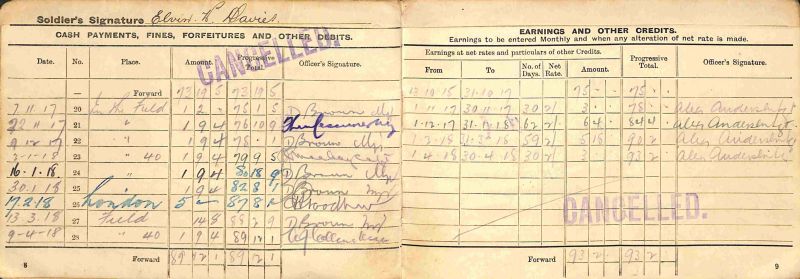 Soldier's Signature Elvin K. Davies.
CASH PAYMENTS, FINES, FORFEITURES AND OTHER DEBITS.
CANCELLED.
Date. No. Place. Amount. Progressive Total. Officer's Signature.
— Forward 73 19 5 73 19 5
7 11 17 20 In the Field 1 2 - 75 1 5 D Brown
22 11 17 21 " 1 9 4 76 10 9
9 12 17 22 " 1 9 4 78 - 1 D Brown
2-1-18 23 " 40 1 9 4 79 9 5
16.1.18. 24 " 1 9 4 80 18 9 D Brown
30.1.18 25 " 1 9 4 82 8 1 D Brown
17 2 18 26 London 5 — 87 8 1
13 3.18 27 Field 14 8 88 2 9 D Brown
9-4-18 28 " 40 1 9 4 89 12 1
Forward 89 12 1 89 12 1
8
EARNINGS AND OTHER CREDITS.
Earnings to be entered Monthly and when any alteration of net rate is made.
Earnings at net rates and particulars of other Credits.
From To No. of Days. Net Rate. Amount. Progressive Total. Officer's Signature.
13.10.15 31.10.17 75 - 75 -
1.11.17 30.11.17 30 2/ 3 - 78 - Alex Anderson
1.12.17 31.1.18 62 2/ 6 4 84 4 Alex Anderson
1.2.18 31.3.18 59 2/ 5 18 90 2 Alex Anderson
1.4.18 30.4.18 30 2/ 3 - 93 2 Alex Anderson
CANCELLED.
Forward 93 2 - 93 2
9